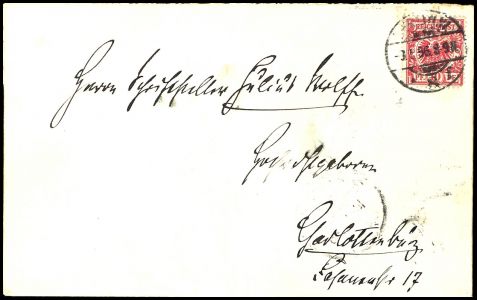 Herrn Schriftsteller Julius Wolff
Hochwohlgeboren
Charlottenburg
Fasanenstr 17